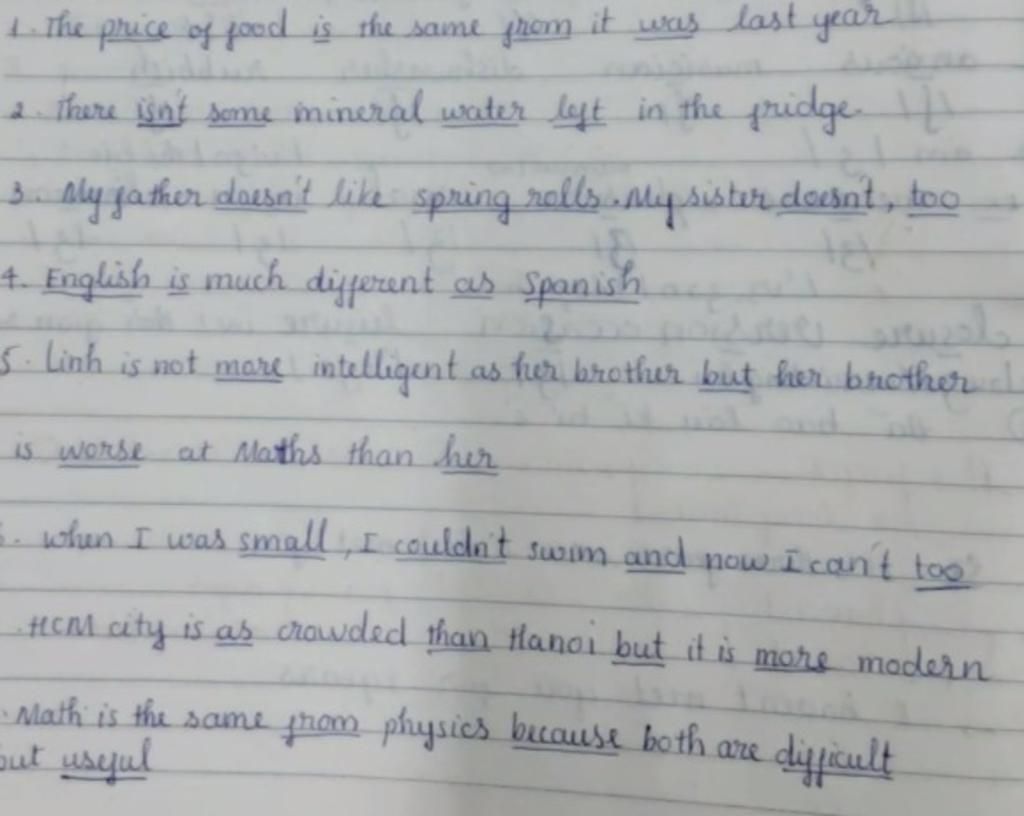 1. The price of food is the same from it was last year
2. There isn't some mineral water left in the fridge.
3. My father doesn't like spring rolls. My sister doesn't, too
4. English is much different as Spanish
5. Linh is not more intelligent as her brother but her brother
is worse at Maths than her
. when I was small, I couldn't swim and now I can't too
. HCM city is as crowded than Hanoi but it is more modern
. Math is the same from physics because both are difficult
but useful